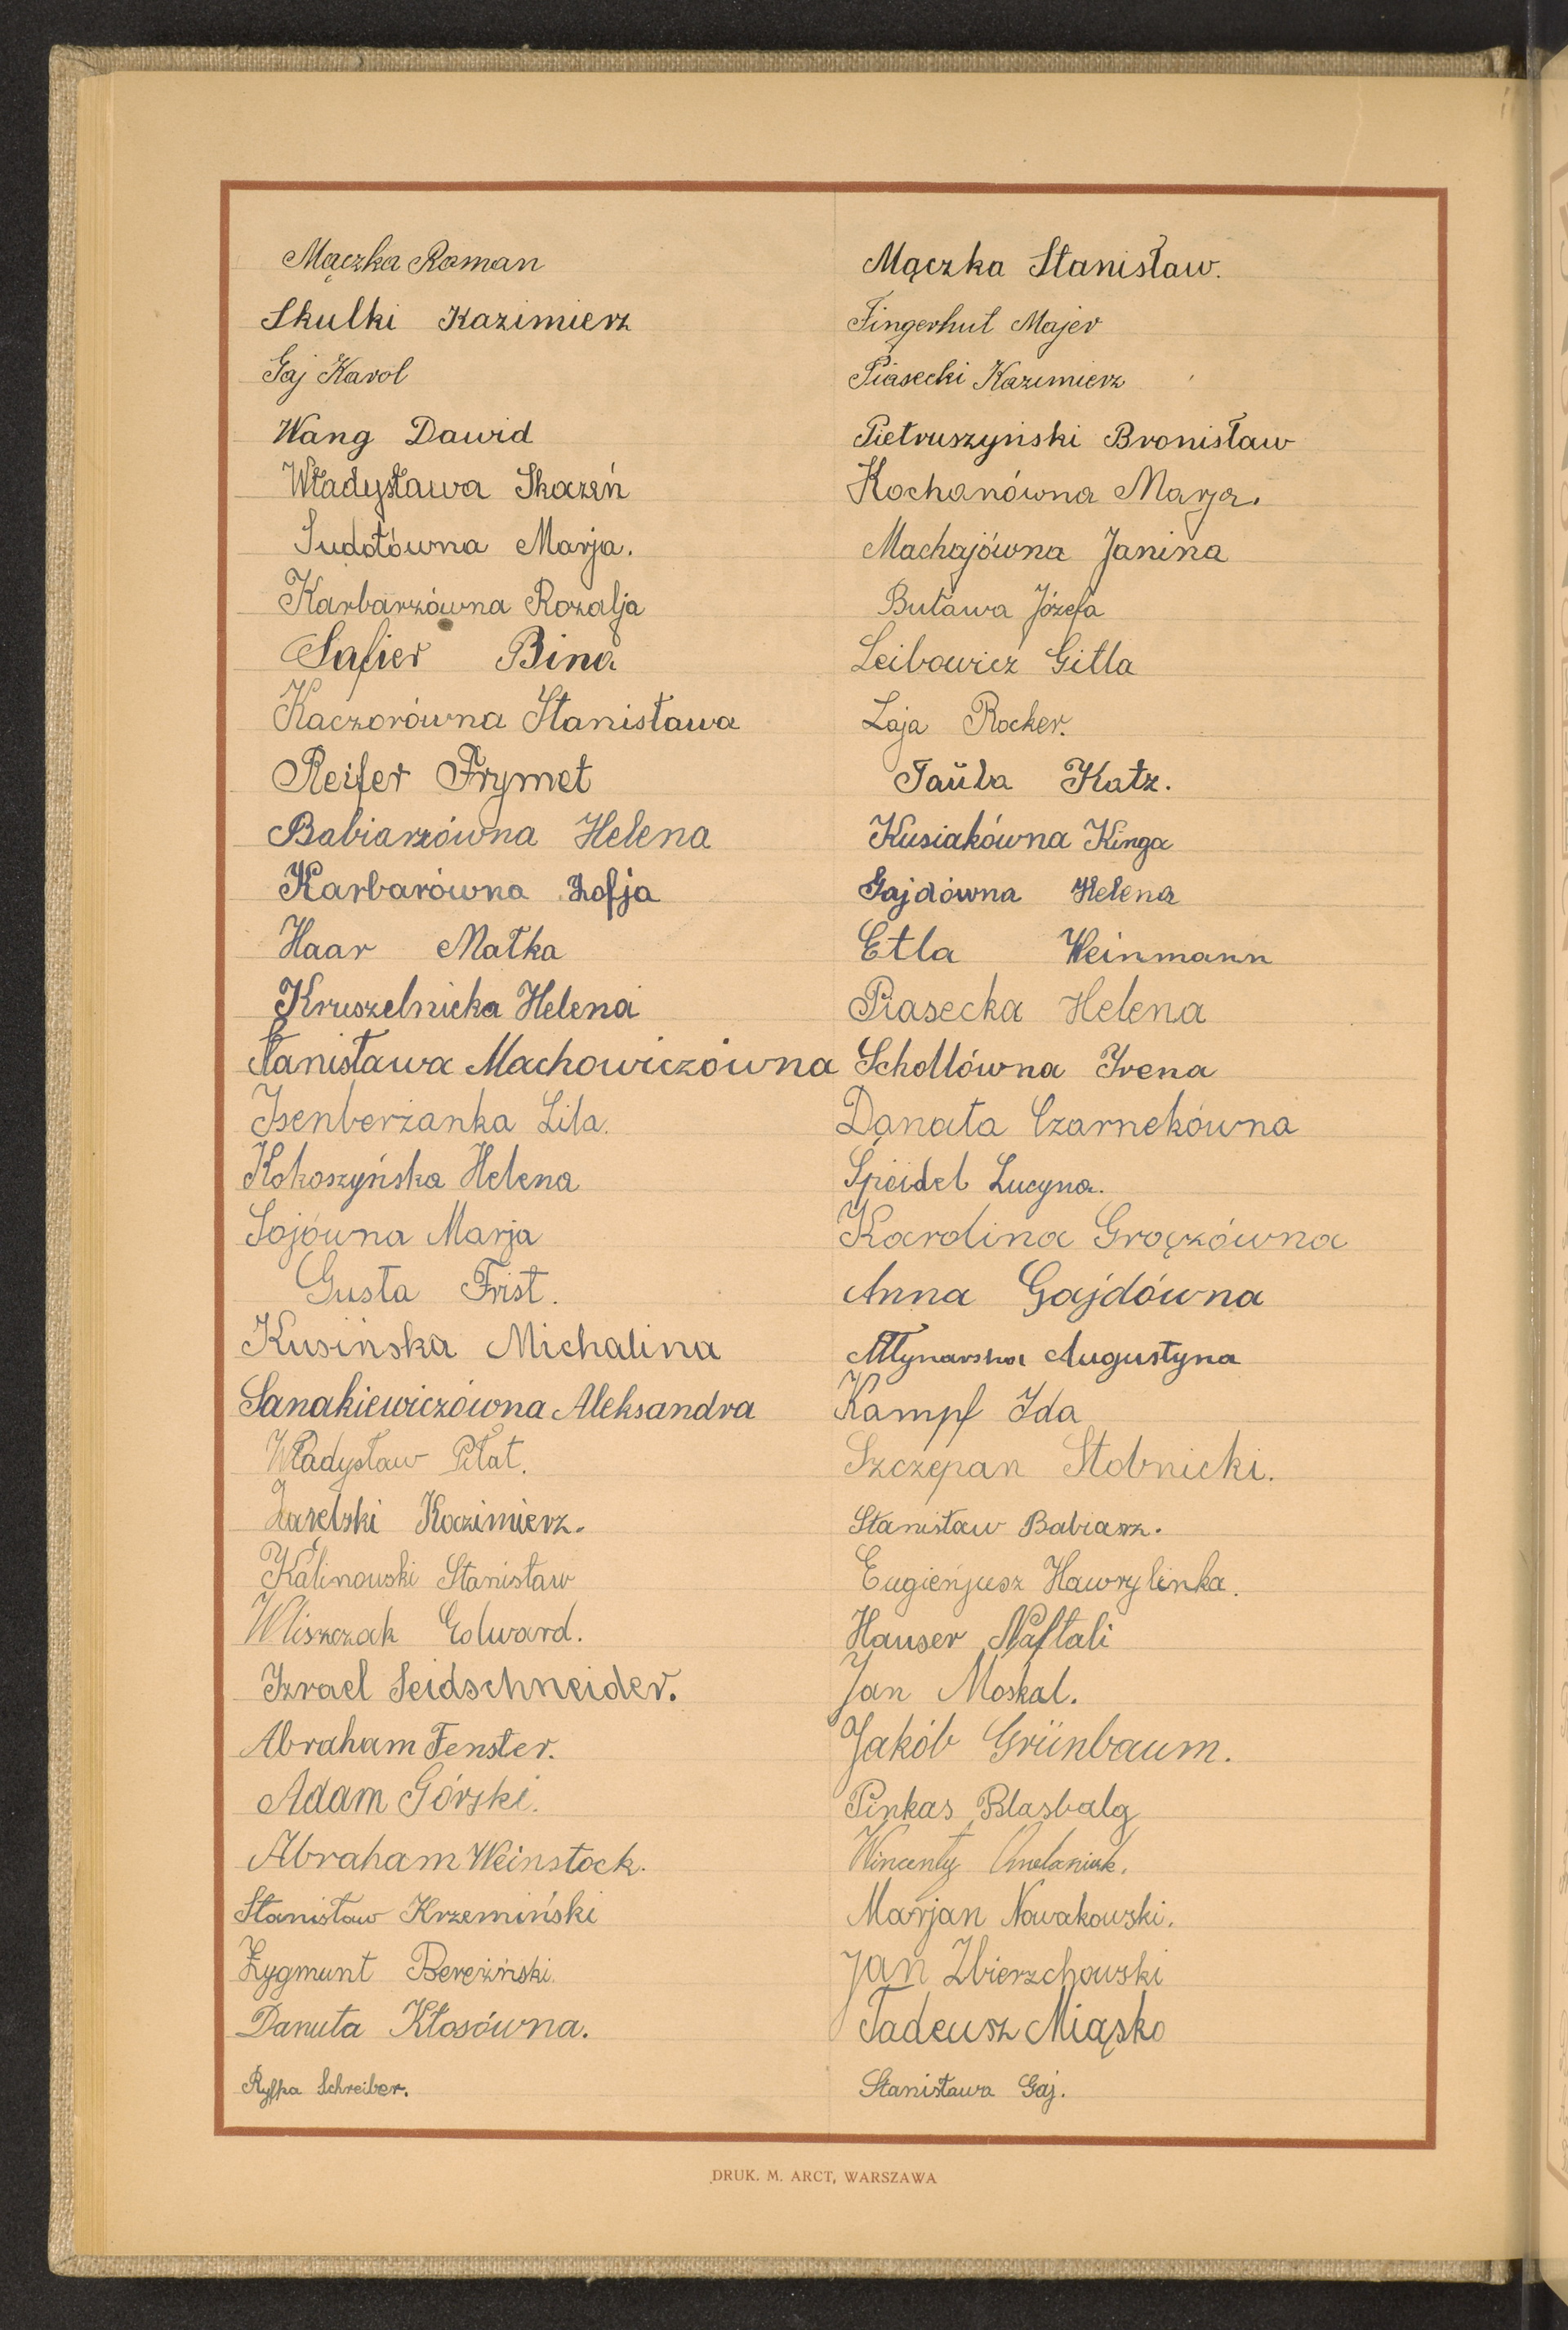 Mączka Roman
Skulki Kazimierz
Gaj Karol
Wang Dawid
Władysława Skazeń
Sudołówna Marja.
Karbarzówna Rozalja
Safier Bina
Kaczorówna Stanisława
Reifer Frymet
Babiarzówna Helena
Karbarówna Zofja
Haar Małka
Kruszelnicka Helena
Stanisława Machowiczówna
Isenberżanka Lila.
Kokoszyńska Helena
Sojówna Marja
Gusta Frist.
Kusińska Michalina
Sanakiewiczówna Aleksandra
Władysław Piłat.
Kazimierz.
Kalinowski Stanisław
Wliszczak Edward.
Izrael Seidschneider.
Abraham Fenster.
Adam Górski.
Abraham Weinstock.
Stanisław Krzemiński
Zygmunt Bereziński.
Danuta Kłosówna.
Ryfka Schreiber.
Mączka Stanisław.
Fingerhut Majer
Piasecki Kazimierz
Pietruszyński Bronisław
Kochanówna Marja.
Machajówna Janina
Buława Józefa
Leibowicz Gitla
Łaja Rocker.
Tauba Katz.
Kusiakówna Kinga
Gajdówna Helena
Etla Weinmann
Piasecka Helena
Schollówna Irena
Danata Czarnekówna
Speidel Lucyna.
Karolina Grączówna
Anna Gajdówna
Młynarska Augustyna
Kampf Ida
Szczepan Stobnicki.
Stanisław Babiarz.
Eugienjusz Hawrylinka.
Hauser Naftali
Jan Moskal.
Jakób Grünbaum.
Pinkas Blasbalg
Wincenty
Marjan Nowakowski.
Jan Zbierzchowski
Tadeusz Miąsko
Stanisława Gaj.
DRUK. M. ARCT, WARSZAWA